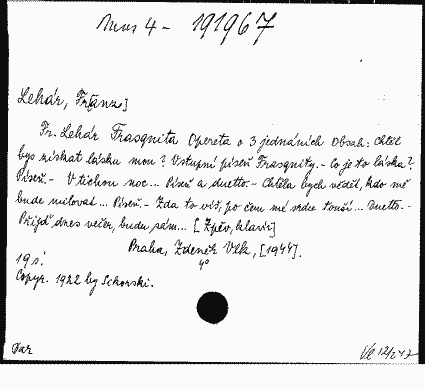 Mus 4 - 191967
Lehár, Fr[anz]
Fr. Lehár Frasquita Opereta o 3 jednáních Obsah: Chtěl
bys získat lásku mou? Vstupní píseň Frasquity. - Co je to láska?
Píseň. - V tichou noc... Píseň a duetto. - Chtěla bych vědět, kdo mě
bude milovat... Píseň. - Zda to víš, po čem mé srdce touží... Duetto. -
Přijď dnes večer, budu sám... [Zpěv, klavír]
Praha, Zdeněk Vlk, [1944].
4°
19 s.
Copyr. 1922 by
Dar